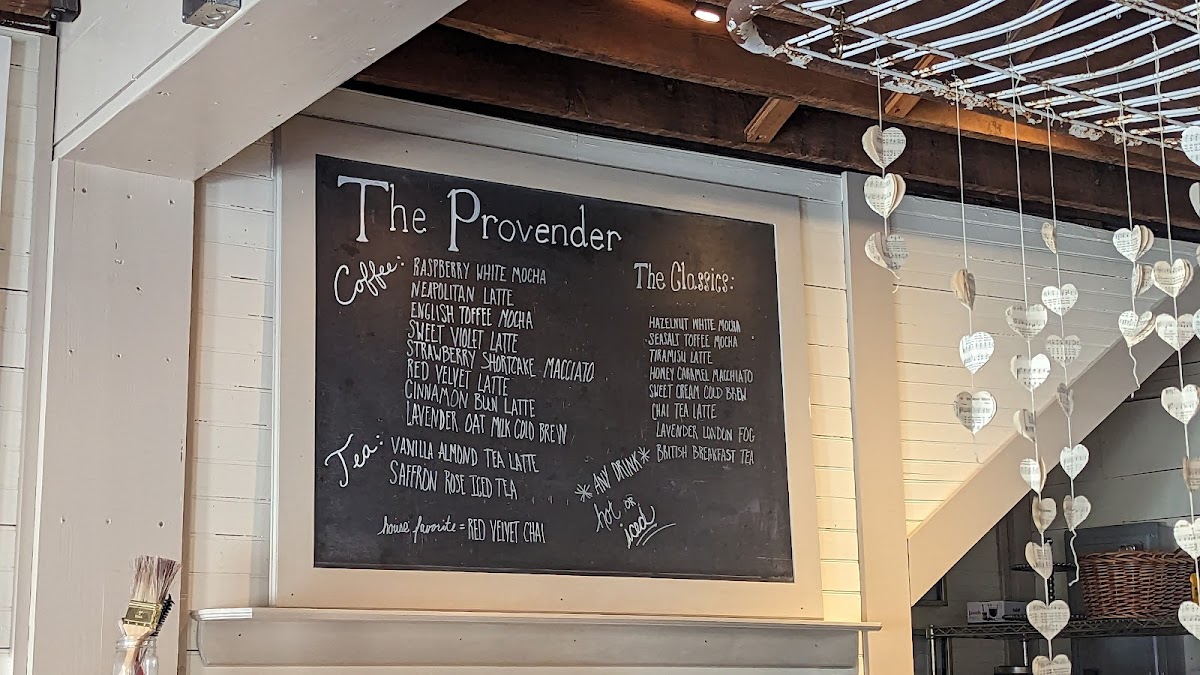 The Provender
Coffee:
RASPBERRY WHITE MOCHA
NEAPOLITAN LATTE
ENGLISH TOFFEE MOCHA
SWEET VIOLET LATTE
STRAWBERRY SHORTCAKE MACCIATO
RED VELVET LATTE
CINNAMON BUN LATTE
LAVENDER OAT MILK COLD BREW
Tea:
VANILLA ALMOND TEA LATTE
SAFFRON ROSE ICED TEA
house favorite = RED VELVET CHAI
The Classics:
HAZELNUT WHITE MOCHA
SEASALT TOFFEE MOCHA
TIRAMISU LATTE
HONEY CARAMEL MACCHIATO
SWEET CREAM COLD BREW
CHAI TEA LATTE
LAVENDER LONDON FOG
BRITISH BREAKFAST TEA
* ANY DRINK *
hot OR
iced